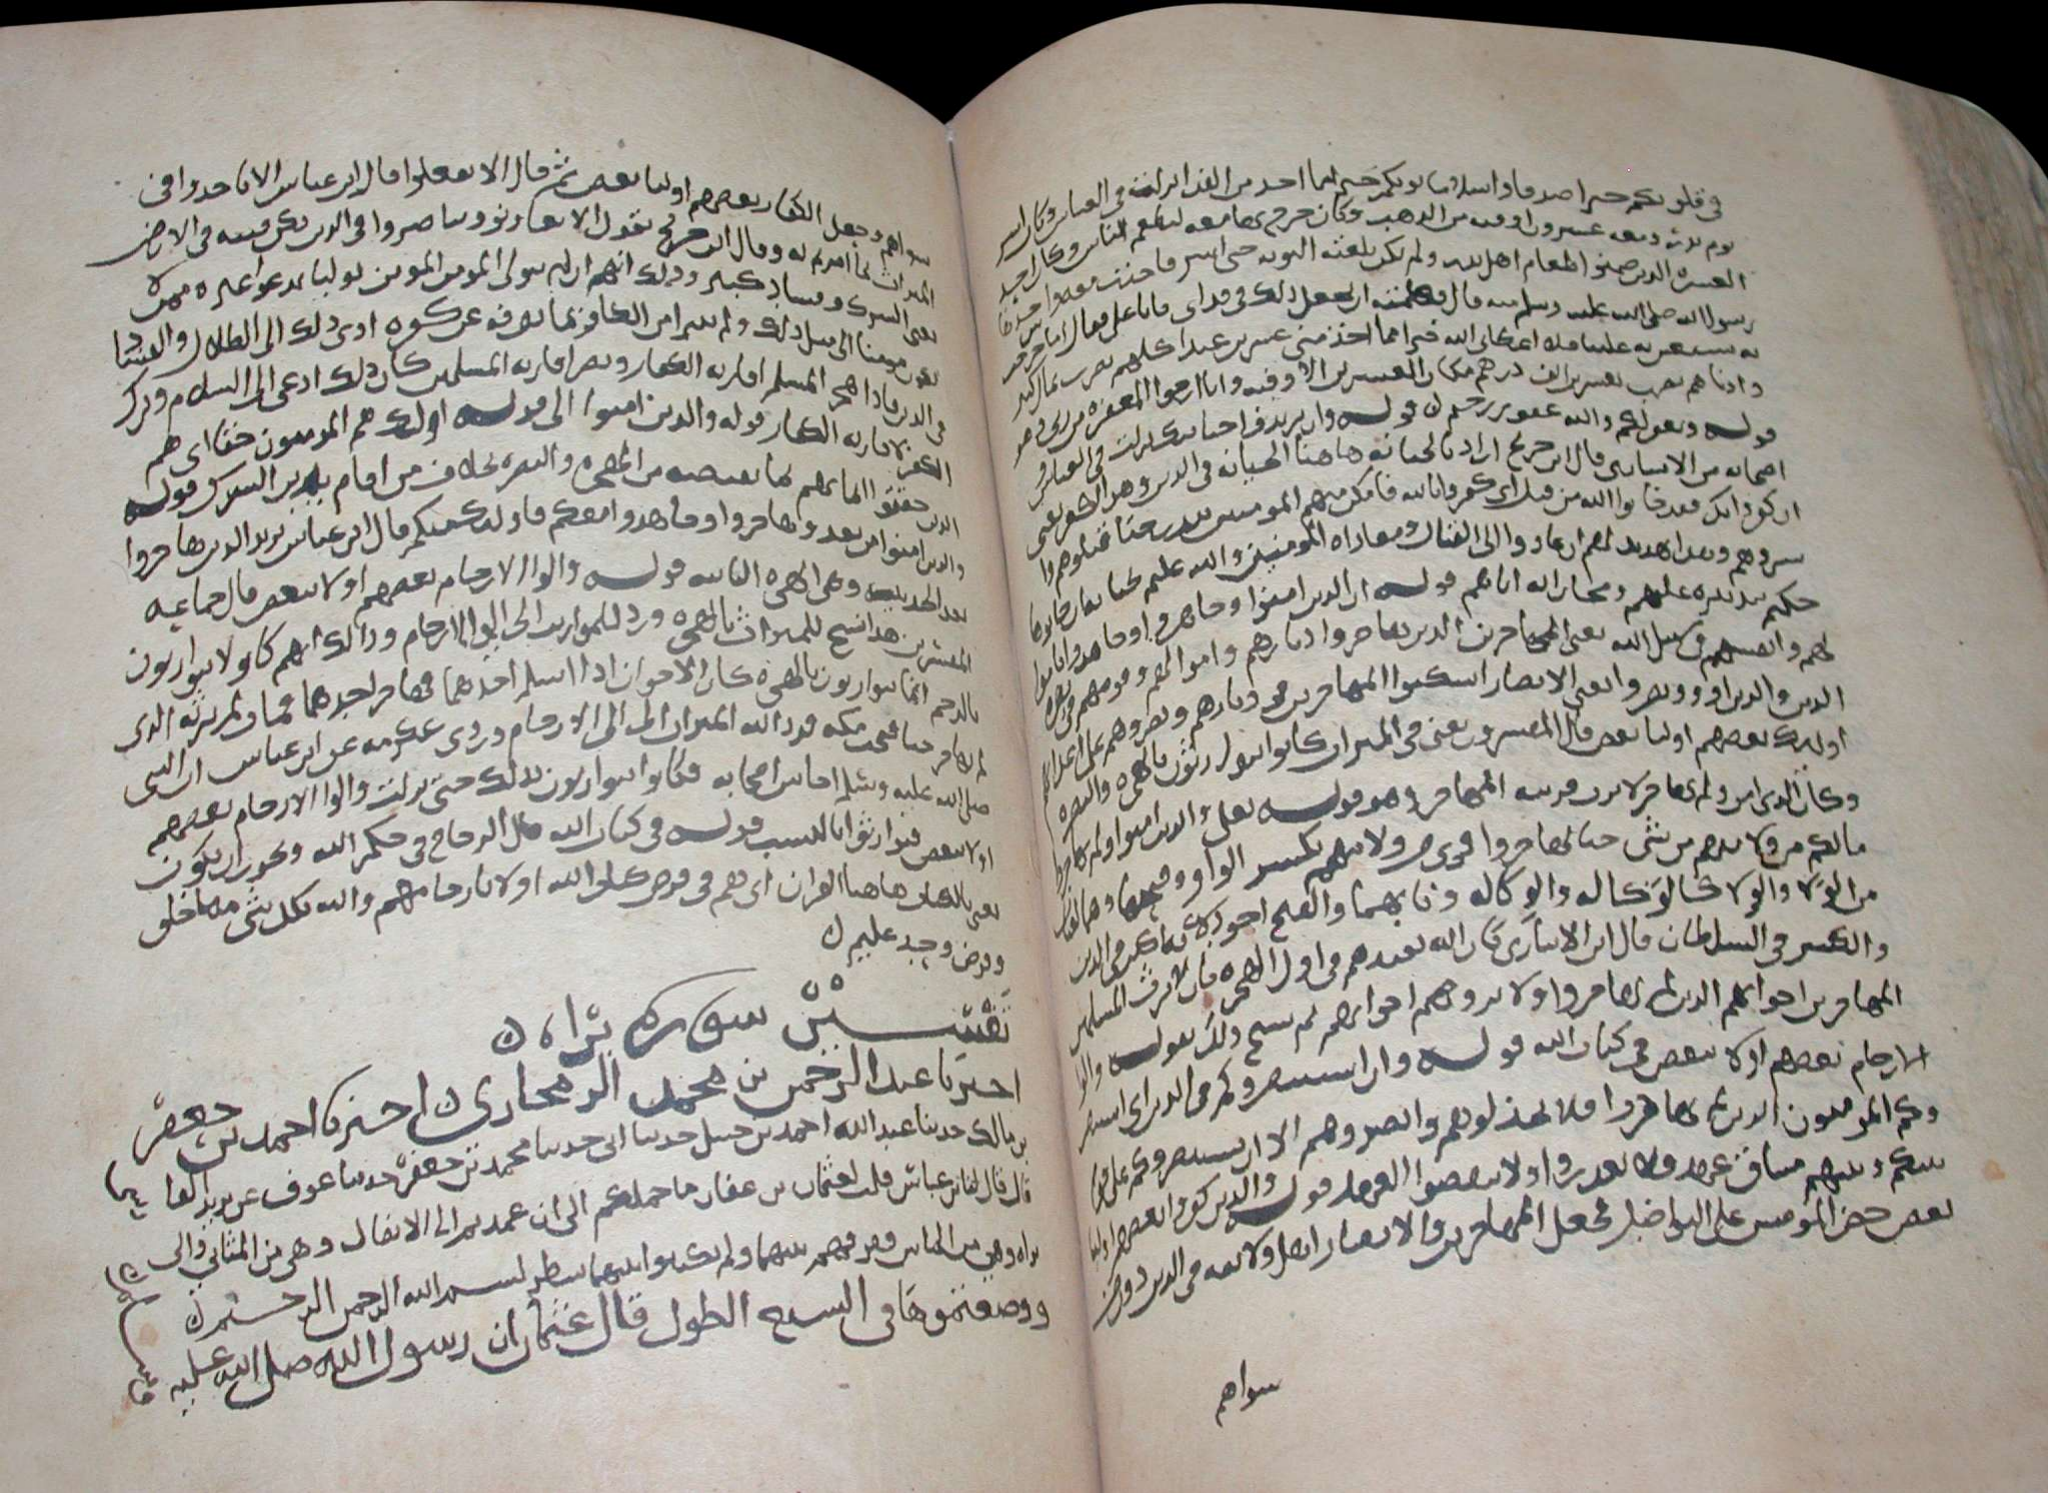 في قلوبكم خيرا صدقا واسلاما يوتكم خيرا مما اخذ من الفدا نزلت في العباس وكان اسر
يوم بدر ومعه عشرون اوقيه من الذهب وكان خرج بها معه ليطعم الناس وكان احد
العشره الذين ضمنوا اطعام اهل بدر ولم يكن بلغته النوبه حتى اسر فاخذت معه واخذها
رسول الله صلى الله عليه وسلم منه قال فكلمته ان يجعل ذلك في فداي فابا علي وقال اما شي خرجت
به تستعين به علينا فلا اعطاني الله خيرا مما اخذ مني عشرين عبدا كلهم يضرب بمال كثير
وادناهم يضرب بعشرين الف درهم مكان العشرين الاوقيه وانا ارجوا المغفره من ربي وهو
قوله ويغفر لكم والله غفور رحيم قوله وان يريدوا خيانتك
قال ابن جريج اراد بالخيانه هاهنا الخيانه في الدين وهو الكفر يعني
ان كفروا بك فقد خانوا الله من قبل اي كفروا بالله فامكن منهم المومنين ببدر حتى قتلوهم وا
سروهم وهذا تهديد لهم ان عادوا الى القتال ومعاداه المومنين والله عليم
حكيم تدبيره عليهم ومجازاته اياهم قوله ان الذين امنوا وهاجروا وجاهدوا باموا
لهم وانفسهم في سبيل الله يعني المهاجرين الذين هاجروا ديارهم واموالهم وقومهم في نصره
الدين والذين اووا ونصروا يعني الانصار اسكنوا المهاجرين ديارهم ونصروهم على اعدائهم
اوليك بعضهم اوليا بعض قال المفسرون يعني في الميراث كانوا يتوارثون بالهجره والنصره
وكان الذي امن ولم يهاجر لا يرث قريبه المهاجر وهو قوله تعالى والذين امنوا ولم يهاجروا
مالكم من ولايتهم من شي حتى يهاجروا قري من ولايتهم بكسر الواو وفتحها وهما لغتان
من الولا والولاه كالوكاله والوكاله وبابهما والفتح اجود لانه اكثر في الدين
والكسر في السلطان قال ابن الانباري كان الله تعبدهم في اول الهجره بان لا يرث المسلمين
المهاجرين اخوانهم الذين لم يهاجروا ولا يرثوهم اخوانهم ثم نسخ ذلك بقوله والوا
الارحام بعضهم اولا ببعض في كتاب الله قوله وان استنصروكم في الدين اي استنصر
وكم المومنون الذين لم يهاجروا فلا تخذلوهم وانصروهم الا ان يستنصروكم على قوم
بينكم وبينهم ميثاق عهد فلا تغدروا ولا تنقضوا العهد قوله والذين كفروا بعضهم اوليا
بعض حض المومنين على التواصل فجعل المهاجرين والانصار اهل ولايه في الدين دون من
سواهم
سواهم وجعل الكفار بعضهم اوليا بعض ثم قال الا تفعلوا قال ابن عباس الا تاخذوا في
الميراث بما امرتم به وقال ابن جريج يقول الا تعاونوا وتناصروا في الدين تكن فتنه في الارض
يعني الشرك وفساد كبير وذلك انهم اذا لم يتولى المومن المومن توليا يدعوا غيره ممن لا
يكون مومنا الى مثل ذلك ولم يتبرا من الكافر بما يصرفه عن كفره ادى ذلك الى الضلال والفساد
في الدين فاذا هجر المسلم اقاربه الكفار ونصر اقاربه المسلمين كان ذلك ادعى الى الاسلام وترك
الكفر لاقاربه الكفار قوله والذين امنوا الى قوله اولئك هم المومنون حقا اي هم
الذين حققوا ايمانهم بما يقتضيه من الهجره والنصره بخلاف من اقام بدار الشرك قوله
والذين امنوا من بعد وهاجروا وجاهدوا معكم فاولئك منكم قال ابن عباس يريد الذين هاجروا
بعد الحديبيه وهي الهجره الثانيه قوله والوا الارحام بعضهم اولا ببعض قال جماعه
المفسرين هذا نسخ للميراث بالهجره ورد للمواريث الى ذوي الارحام وذلك انهم كانوا لا يتوارثون
بالرحم انما يتوارثون بالهجره كان الاخوان اذا اسلم احدهما وهاجر لم يرثه الذي
لم يهاجر حتى فتحت مكه فرد الله الميراث الى الى الارحام وروى عكرمه عن ابن عباس ان النبي
صلى الله عليه وسلم اخا بين اصحابه فكانوا يتوارثون بذلك حتى نزلت والوا الارحام بعضهم
اولا ببعض فتوارثوا بالنسب قوله في كتاب الله قال الزجاج في حكم الله ويجوز ان يكون
يعني بالكتاب هاهنا القران اي هم في فرض كتاب الله اولا بارحامهم والله بكل شي مما خلق
وفرض وحد عليم
تفسير سوره براه
اخبرنا عبد الرحمن بن محمد الرمجاري اخبرنا احمد بن جعفر
بن مالك حدثنا عبد الله احمد بن حنبل حدثنا ابي حدثنا محمد بن جعفر حدثنا عوف عن يزيد
قال قال لنا ابن عباس قلت لعثمان بن عفان ما حملكم الى ان عمدتم الى الانفال وهي من المثاني والى
براه وهي من المايين فقرنتم بينهما ولم تكتبوا بينهما سطر بسم الله الرحمن الرحيم
ووضعتموها في السبع الطول قال عثمان ان رسول الله صلى الله عليه